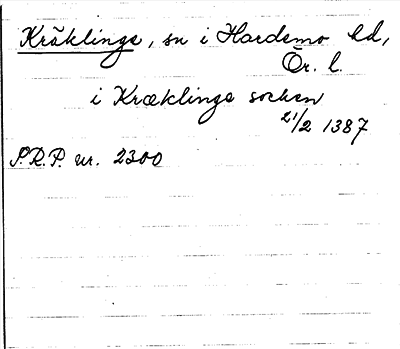 Kräklinge, sn i Hardemo hd,
Ör. l.
i Kræklinge socken
21/2 1387
S.R.P. nr. 2300